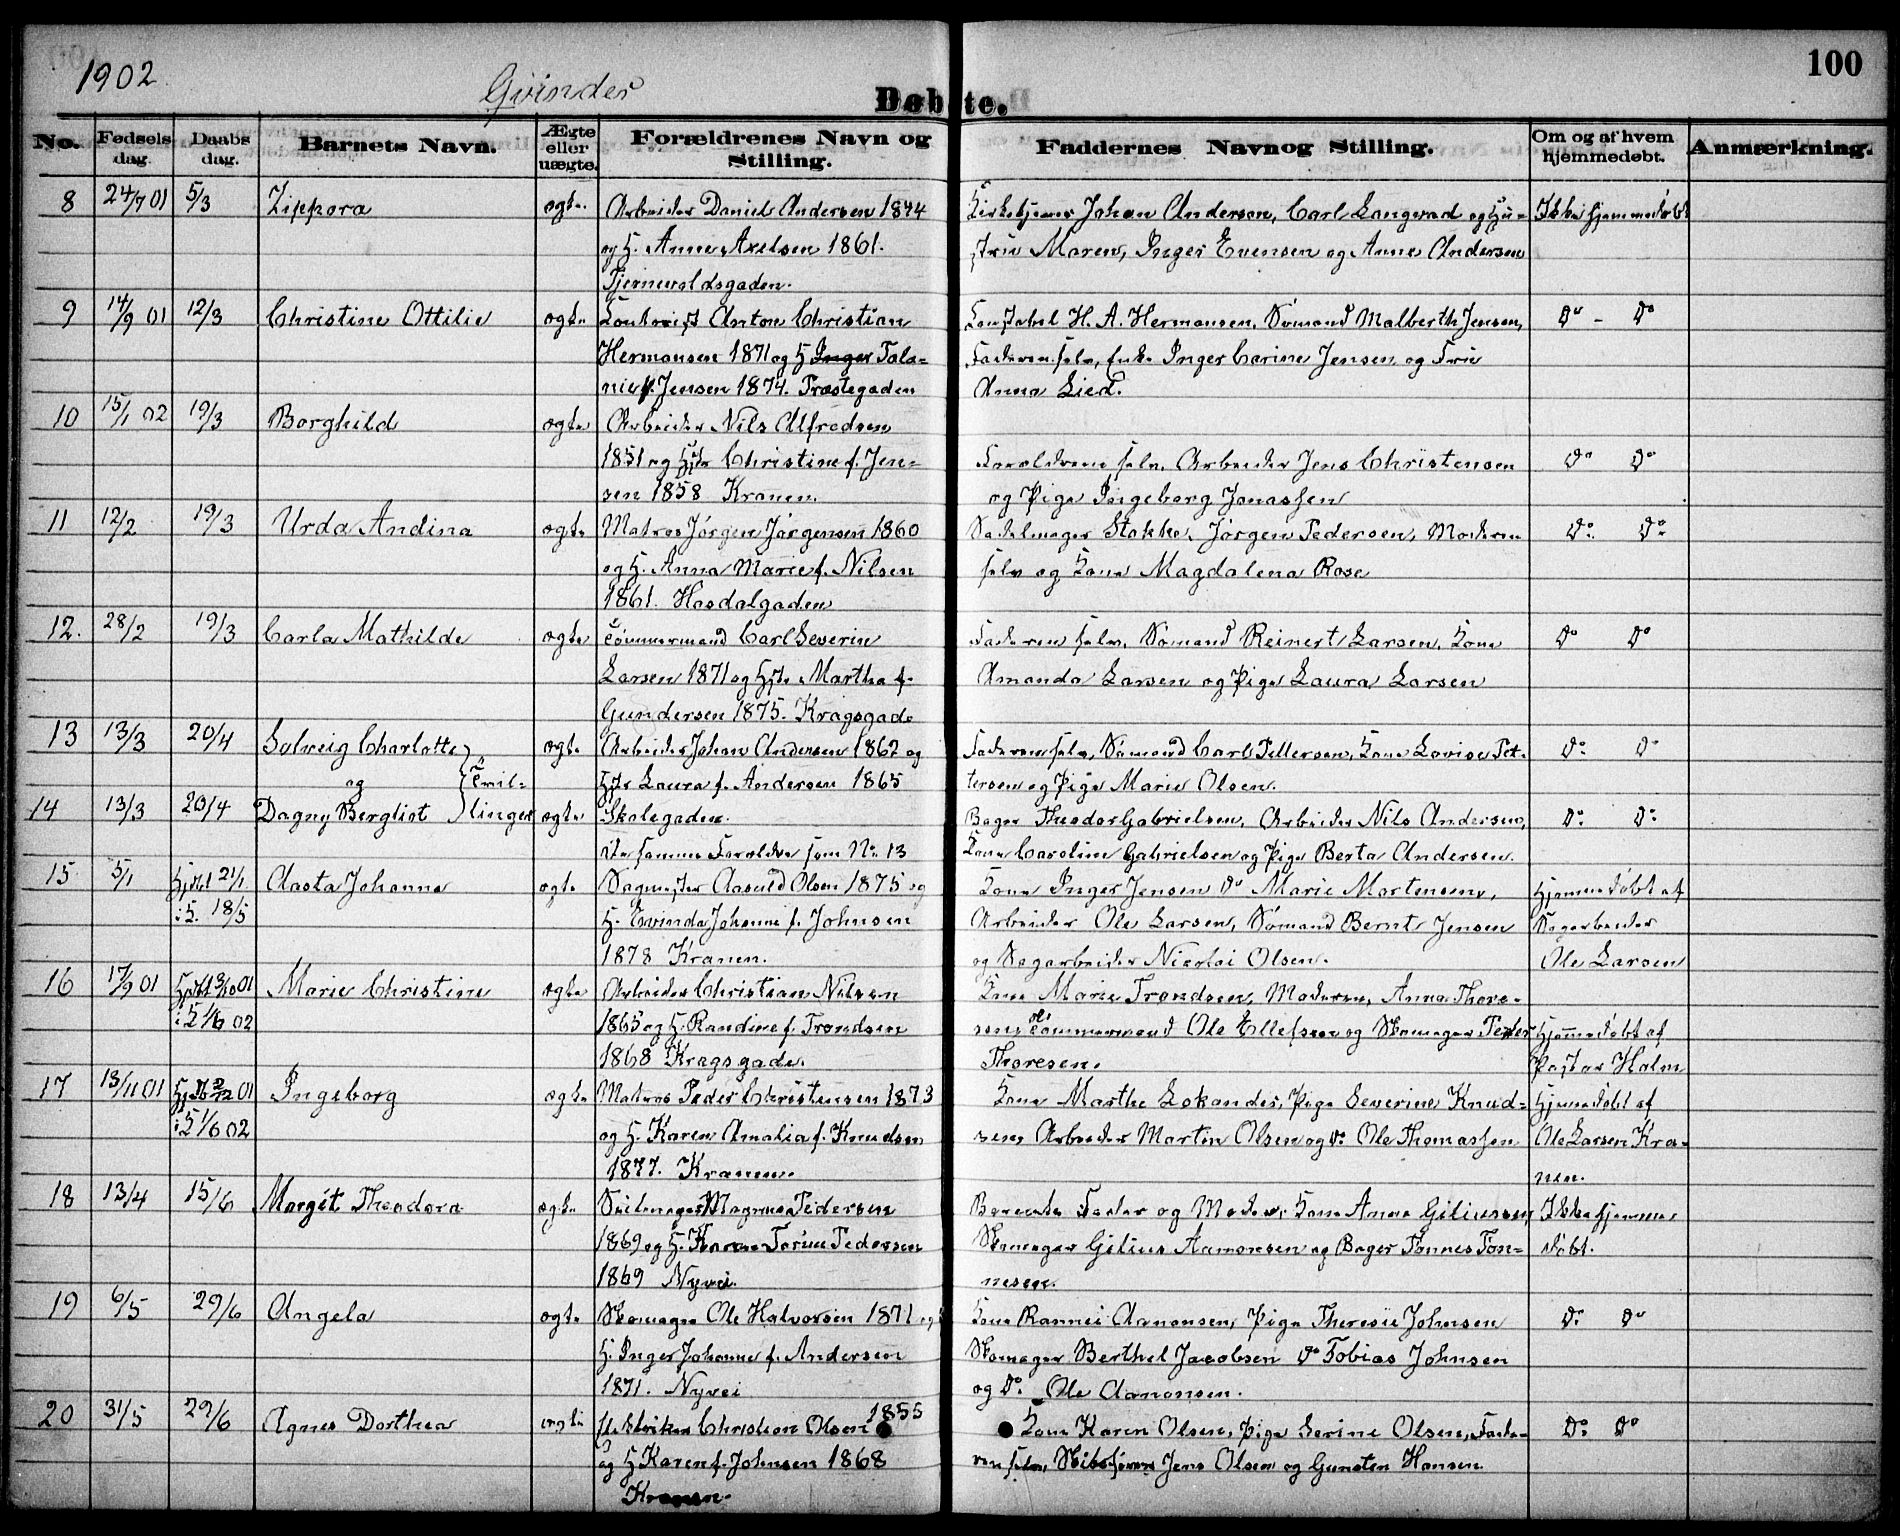 100
1902
Qvinder
Døbte.
No. Fødsels dag. Daabs dag. Barnets Navn. Ægte eller uægte. Forældrenes Navn og Stilling. Faddernes Navn og Stilling. Om og af hvem hjemmedøbt. Anmærkning.
8 24/7 01 5/3 Zippora ægte. Arbeider Daniel Andersen 1844 Kirketjener Johan Andersen, Carl Langevad og Hu- Ikke hjemmedøbt
og H. Anne Axelsen 1861. stru Maren, Inger Evensen og Anne Andersen
Tjernevoldsgaden.
9 14/9 01 12/3 Christine Ottilie ægte Anton Christian Konstabel H. A. Hermansen, Sømand Malberth Jensen, Do - Do
Hermansen 1871 og H. Inger Tala- Faderen selv, Enke Inger Carine Jensen og Frue
nie f. Jensen 1874. Præstegaden Anna Lied.
10 15/1 02 19/3 Borghild ægte Arbeider Nils Alfredsen
1851 og Hstr Christine f. Jen- Forældrene selv, Arbeider Jens Christensen Do Do
sen 1858 Kranen. og Pige Ingeborg Jonassen
11 12/2 19/3 Urda Andina ægte Matros Jörgen Jörgensen 1860 Sadelmager Stokke, Jörgen Pedersen, Moderen Do. Do.
og H. Anna Marie f. Nilsen selv og Kone Magdalena Rose
1861. Hasdalgaden
12. 28/2 19/3 Carla Mathilde ægte Tömmermand Carl Severin Faderen selv, Sömand Reinert Larsen, Kone Do Do
Larsen 1871 og Hstr Martha f. Amanda Larsen og Pige Laura Larsen
Gundersen 1875. Kragsgade
13 13/3 20/4 Solveig Charlotte ægte Arbeider Johan Andersen 1862 og Faderen selv, Sømand Carl Pettersen, Kone Lovise Pet- Do Do
og } Tvil- Hstr Laura f. Andersen 1865 tersen og Pige Marie Olsen.
14 13/3 20/4 Dagny Bergliot } linger ægte Skolegaden. Bager Theodor Gabrielsen, Arbeider Nils Andersen, Do. Do.
de samme Forældre som No 13 Kone Caroline Gabrielsen og Pige Berta Andersen.
15 5/1 Hjdbt 21/1 Aasta Johanna ægte Sagmester Aasuld Olsen 1875 og Kone Inger Jensen Do Marie Mortensen, Hjemmedøbt af
i K. 18/5 H. Evinda Johanne f. Johnsen Arbeider Ole Larsen, Sömand Bernt Jensen Sagarbeider
1878 Kranen. og Sagarbeider Nicolai Olsen. Ole Larsen
16 17/9 01 Hjdbt 3/10 01 Marie Christine ægte Arbeider Christian Nilsen Kone Marie Trondsen, Moderen, Anna Thore-
i K 1/6 02 1865 og H. Randine f. Trondsen sen, Tömmermand Ole Ellefsen og Skomager Peder Hjemmedøbt af
1868 Kragsgade. Thoresen. Pastor Holm
17 13/11 01 Hjdbt 2/12 01 Ingeborg ægte Matros Peder Christensen 1873 Kone Marthe Lokander, Pige Severine Knud- Hjemmedøbt af
i K 1/6 02 og H. Karen Amalia f. Knudsen sen, Arbeider Martin Olsen og Do. Ole Thomassen Ole Larsen Kra-
1877. Kranen. nen.
18 13/4 15/6 Margit Theodora ægte Seilmager Magnus Pedersen Barnets Fader og Moder, Kone Anne Giliussen, Ikke hjemme
1869 og H. Karen Torine Pedersen Skomager Gilius Aamonsen og Bager Tönnes Tön- døbt.
1869 Nyvei. nesen.
19 6/5 29/6 Angela ægte Skomager Ole Halvorsen 1871 og Kone Rannei Aanonsen, Pige Theresie Johnsen Do. Do
H. Inger Johanne f. Andersen Skomager Berthel Jacobsen Do Tobias Johnsen
1871. Nyvei og Do. Ole Aanonsen.
20 31/5 29/6 Agnes Dorthea ægte Christian Olsen 1855 Kone Karen Olsen, Pige Serine Olsen, Fade- Do. Do
og H Karen f. Johnsen 1868 ren selv, Skibsfører Jens Olsen og Gunsten Hansen
Kranen.